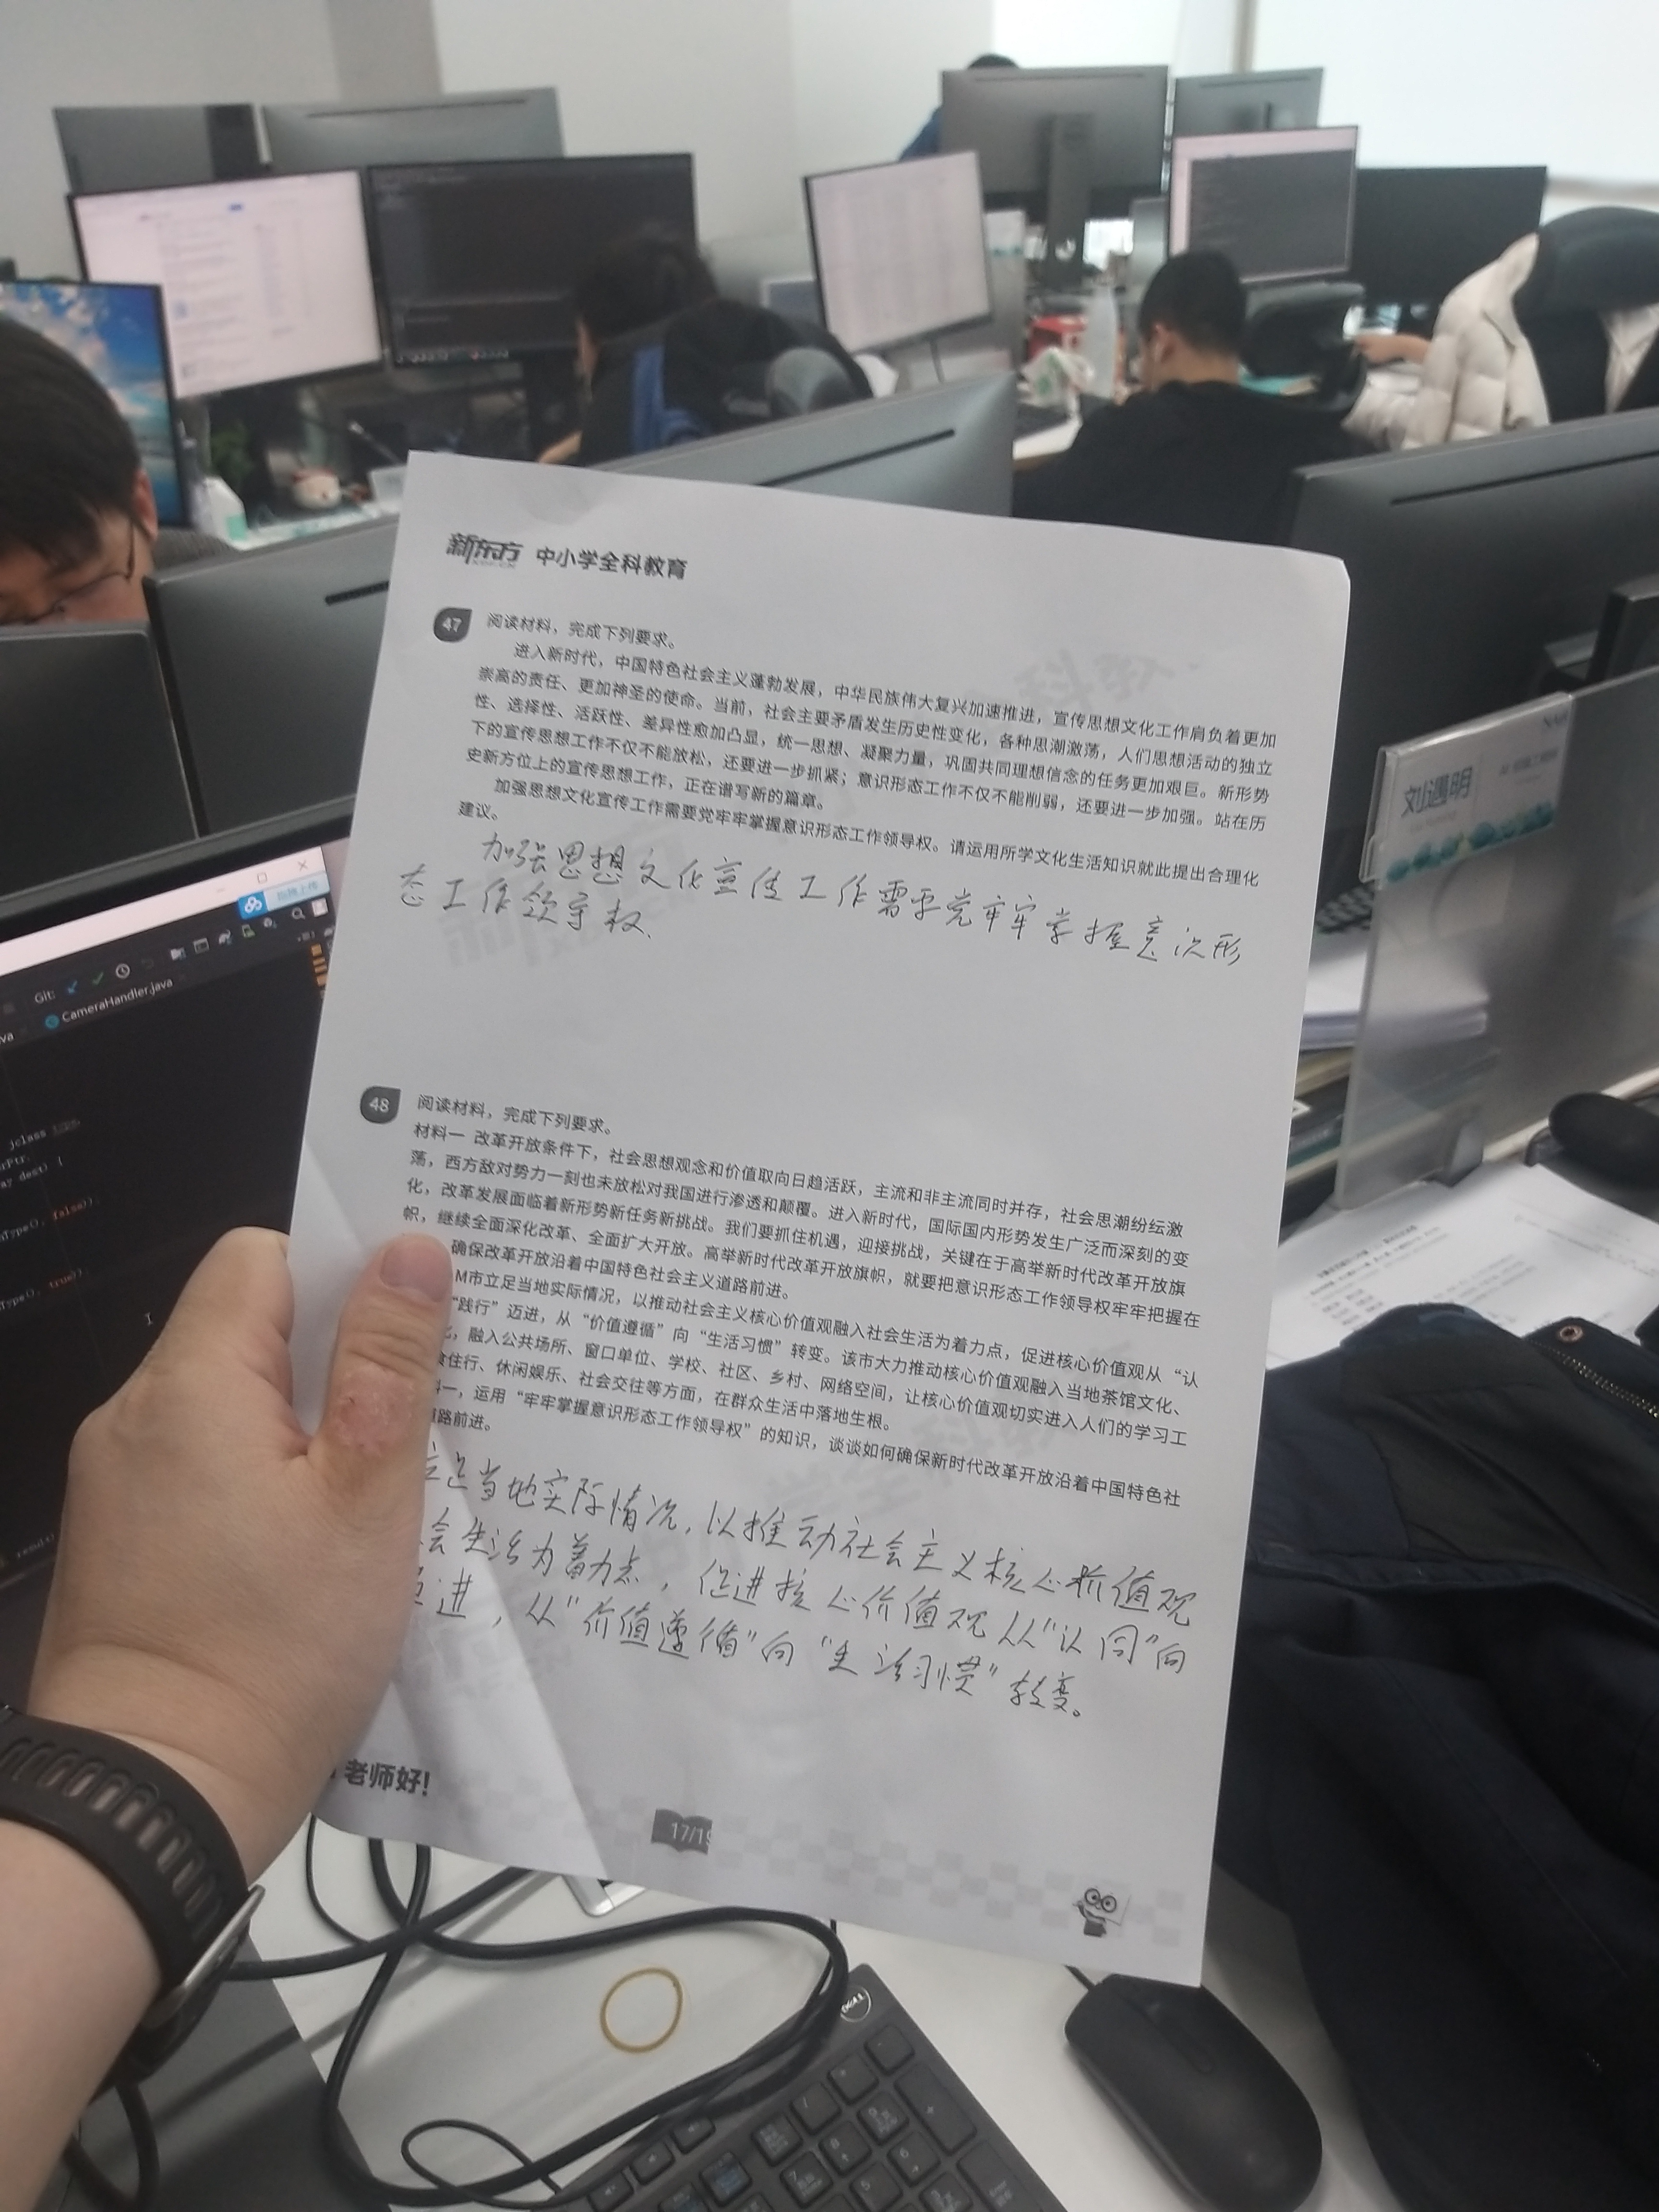 新东方 中小学全科教育
47
阅读材料，完成下列要求。
进入新时代，中国特色社会主义蓬勃发展，中华民族伟大复兴加速推进，宣传思想文化工作肩负着更加
崇高的责任、更加神圣的使命。当前，社会主要矛盾发生历史性变化，各种思潮激荡，人们思想活动的独立
性、选择性、活跃性、差异性愈加凸显，统一思想、凝聚力量，巩固共同理想信念的任务更加艰巨。新形势
下的宣传思想工作不仅不能放松，还要进一步抓紧；意识形态工作不仅不能削弱，还要进一步加强。站在历
史新方位上的宣传思想工作，正在谱写新的篇章。
加强思想文化宣传工作需要党牢牢掌握意识形态工作领导权。请运用所学文化生活知识就此提出合理化
建议。
加强思想文化宣传工作需要党牢牢掌握意识形
态工作领导权.
48
阅读材料，完成下列要求。
材料一 改革开放条件下，社会思想观念和价值取向日趋活跃，主流和非主流同时并存，社会思潮纷纭激
荡，西方敌对势力一刻也未放松对我国进行渗透和颠覆。进入新时代，国际国内形势发生广泛而深刻的变
化，改革发展面临着新形势新任务新挑战。我们要抓住机遇，迎接挑战，关键在于高举新时代改革开放旗
帜，继续全面深化改革、全面扩大开放。高举新时代改革开放旗帜，就要把意识形态工作领导权牢牢把握在
确保改革开放沿着中国特色社会主义道路前进。
M市立足当地实际情况，以推动社会主义核心价值观融入社会生活为着力点，促进核心价值观从“认
“践行”迈进，从“价值遵循”向“生活习惯”转变。该市大力推动核心价值观融入当地茶馆文化、
，融入公共场所、窗口单位、学校、社区、乡村、网络空间，让核心价值观切实进入人们的学习工
食住行、休闲娱乐、社会交往等方面，在群众生活中落地生根。
料一，运用“牢牢掌握意识形态工作领导权”的知识，谈谈如何确保新时代改革开放沿着中国特色社
道路前进。
立足当地实际情况，以推动社会主义核心价值观
会生活为着力点，促进核心价值观从“认同”向
迈进，从“价值遵循”向“生活习惯”转变。
老师好!
17/19
刘遇明
Git:
CameraHandler.java
jclass
false)
true)
DELL